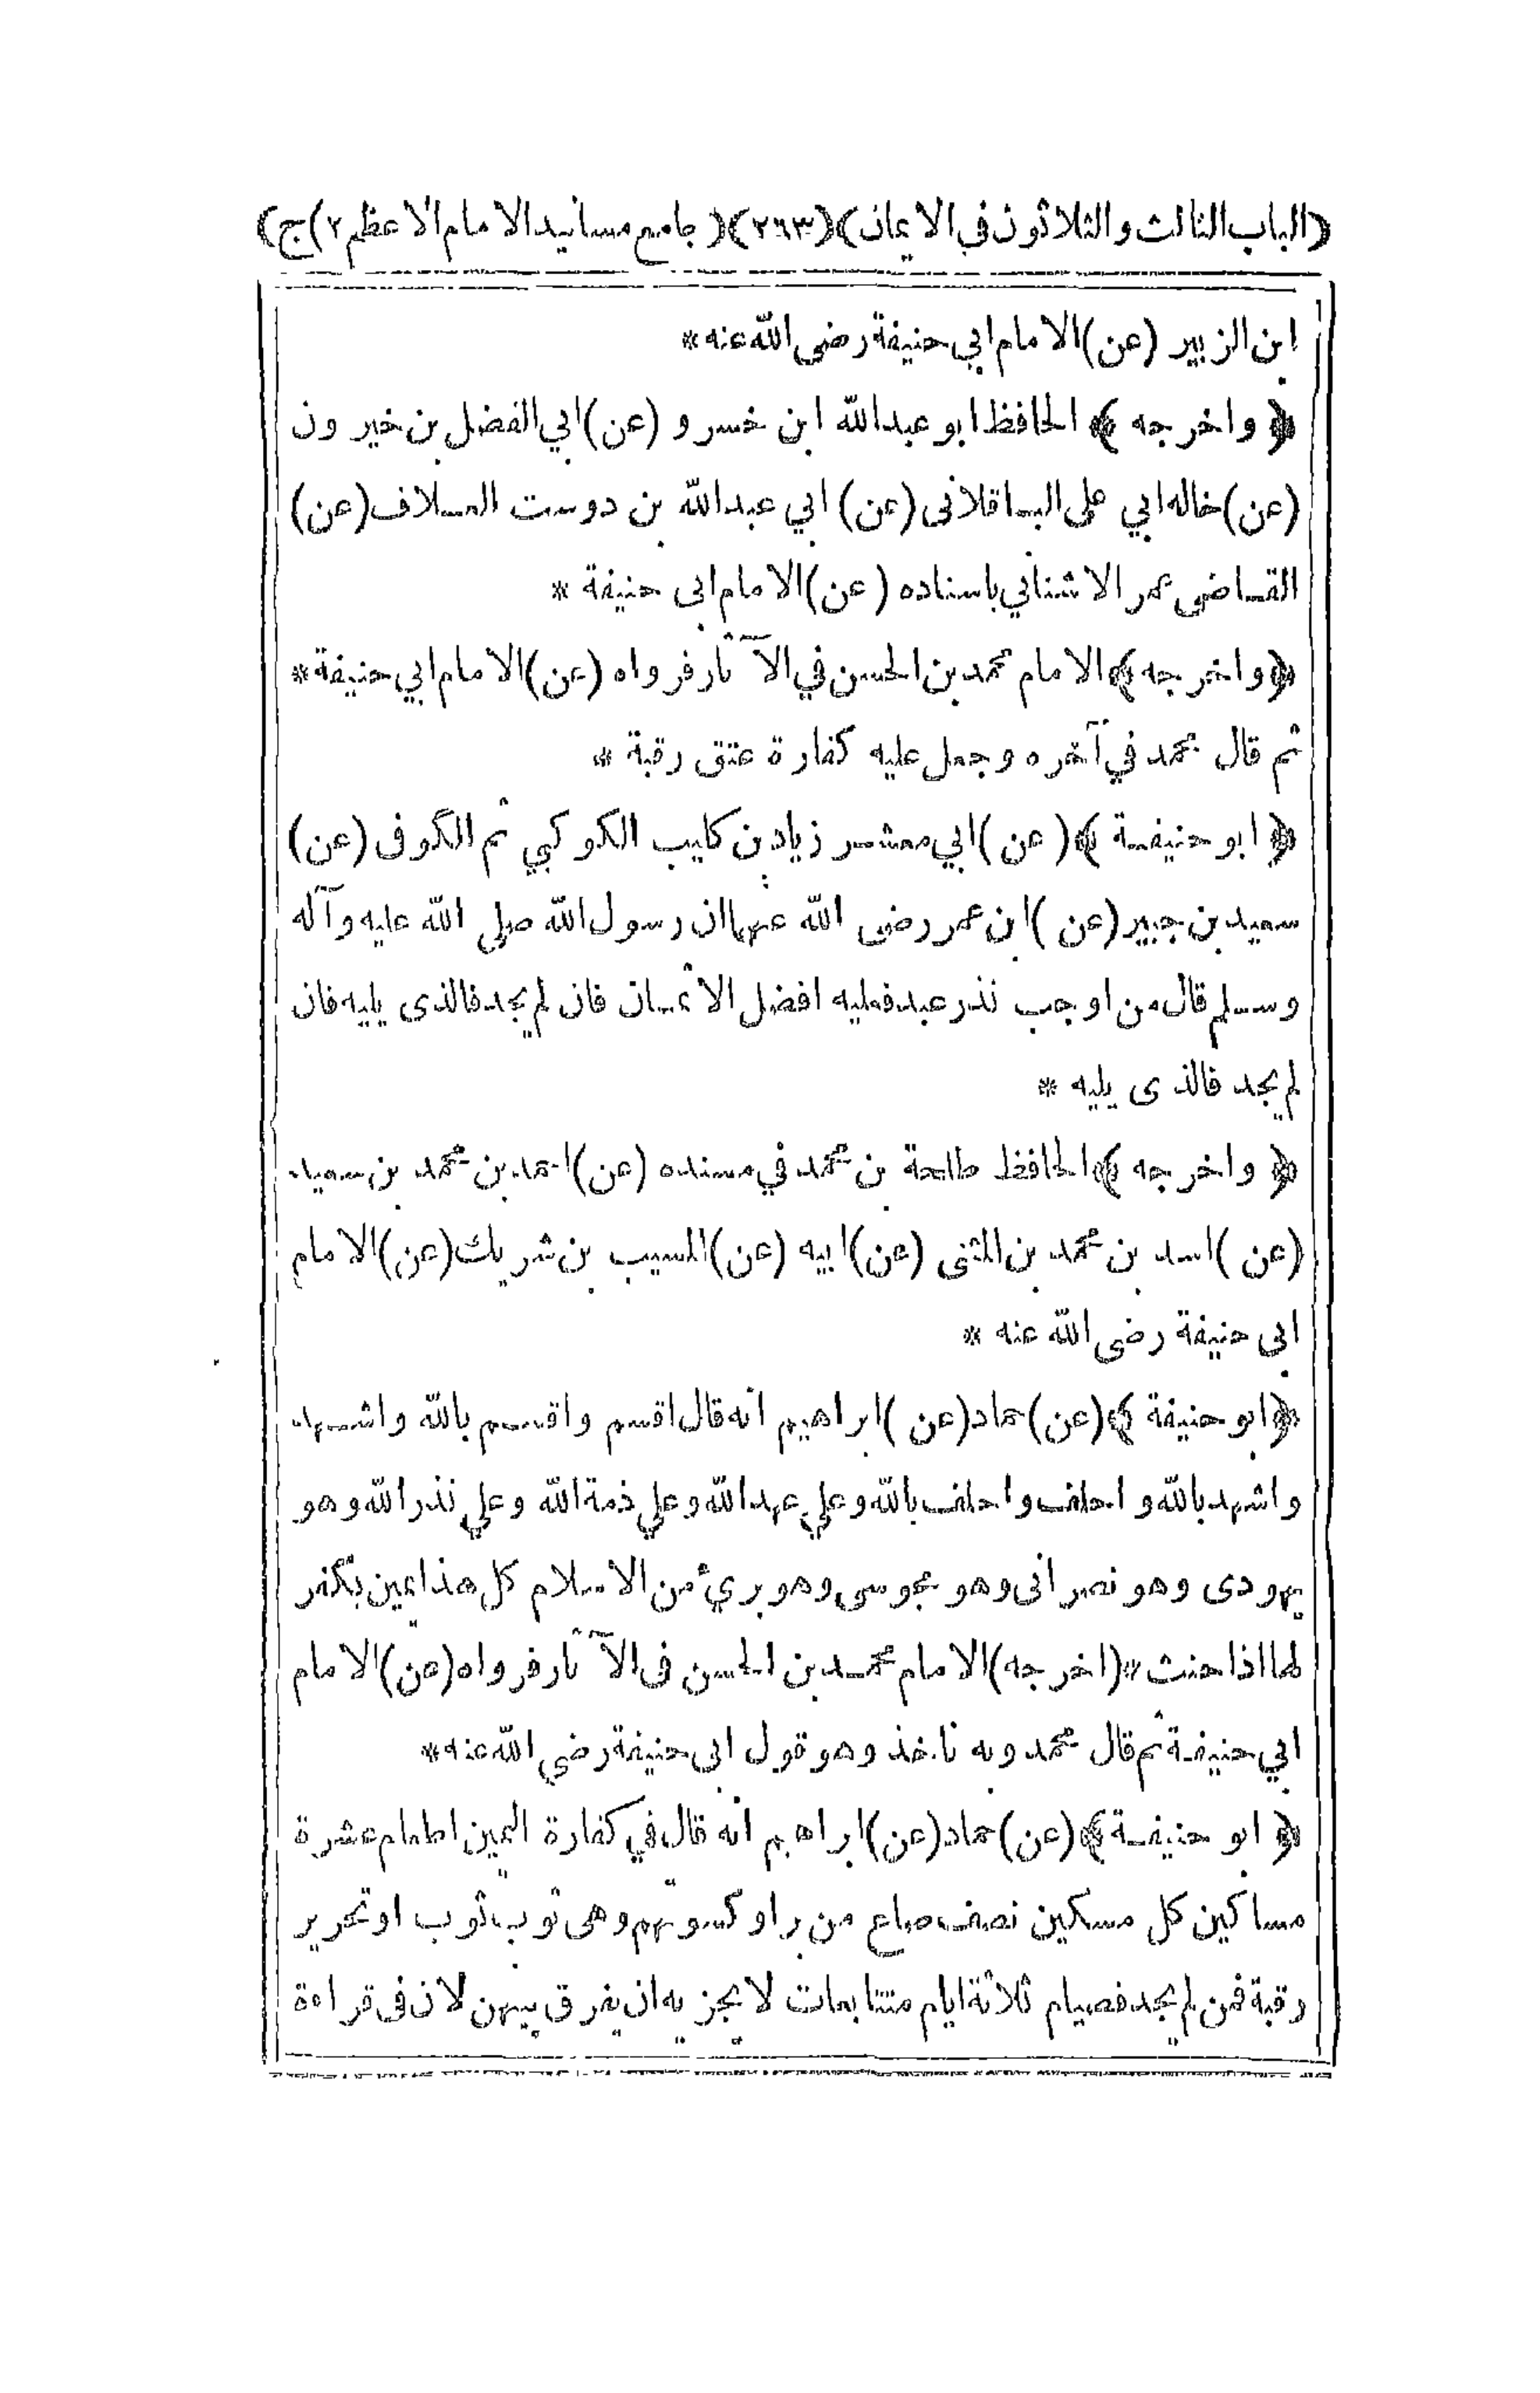 (الباب الثالث والثلاثون في الايمان) (٢٦٣) (جامع مسانيد الامام الاعظم ٢) ج)
ابن الزبير (عن) الامام ابي حنيفة رضى الله عنه *
﴿ واخرجه ﴾ الحافظ ابو عبدالله ابن خسرو (عن) ابي الفضل بن خيرون
(عن) خاله ابي على الباقلانى (عن) ابي عبدالله بن دوست العلاف (عن)
القاضى عمر الاشناني باسناده (عن) الامام ابى حنيفة *
﴿ واخرجه ﴾ الامام محمد بن الحسن في الآثار فرواه (عن) الامام ابي حنيفة *
ثم قال محمد في آخره وجعل عليه كفارة عتق رقبة *
﴿ ابو حنيفة ﴾ (عن) ابي معشر زياد بن كليب الكوكبي ثم الكوفى (عن)
سعيد بن جبير (عن) ابن عمر رضى الله عنهما ان رسول الله صلى الله عليه وآله
وسلم قال من اوجب نذر عبد فعليه افضل الاثمان فان لم يجد فالذى يليه فان
لم يجد فالذى يليه *
﴿ واخرجه ﴾ الحافظ طلحة بن محمد في مسنده (عن) احمد بن محمد بن سعيد
(عن) اسد بن محمد بن المثنى (عن) ابيه (عن) المسيب بن شريك (عن) الامام
ابى حنيفة رضى الله عنه *
﴿ ابو حنيفة ﴾ (عن) حماد (عن) ابراهيم انه قال اقسم واقسم بالله واشهد
واشهد بالله واحلف واحلف بالله وعلي عهد الله وعلي ذمة الله وعلي نذر الله وهو
يهودى وهو نصرانى وهو مجوسى وهو بريء من الاسلام كل هذا يمين يكفر
لها اذا حنث * (اخرجه) الامام محمد بن الحسن فى الآثار فرواه (عن) الامام
ابي حنيفة ثم قال محمد وبه ناخذ وهو قول ابى حنيفة رضي الله عنه *
﴿ ابو حنيفة ﴾ (عن) حماد (عن) ابراهيم انه قال في كفارة اليمين اطعام عشرة
مساكين كل مسكين نصف صاع من بر او كسوتهم وهى ثوب ثوب او تحرير
رقبة فمن لم يجد فصيام ثلاثة ايام متتابعات لا يجزيه ان يفرق بينهن لان فى قراءة